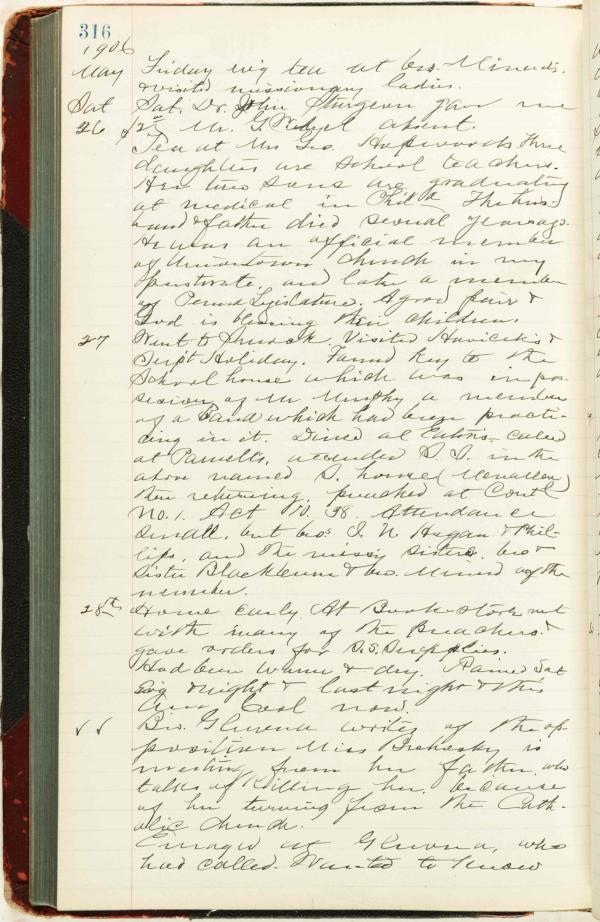 316
1906
May Friday ev'g tea at bro. Minerd's.
& visited missionary ladies.
Sat Sat. Dr. John Sturgeon gave me
26 Mr. G. absent.
Tea at Mrs Geo. Hopwoods three
daughters are school teachers.
Her two sons are graduating
at medical in Phila. The hus-
band & father died several years ago.
He was an official member
of Uniontown church in my
pastorate, and later a member
of Penna Legislature. A good pair &
God is blessing their children.
27 Went to Visited &
Supt Holiday. Found key to the
School house which was in pos-
session of Mr Murphy a member
of a Band which had been practi-
cing in it. Dined at called
at Parnells, attended S. S. in the
above named S. house (Menallen)
then returning, preached at Cent'l
No. 1. Act 10. 38. Attendance
small, but bros. J. N. Hagan & Phil-
lips, and the miss'y sisters, bro &
Sister Blackburn & bro. Minerd of the
number.
28th Home early. At Book-store met
with many of the Preachers &
gave orders for S. S. Supplies.
Had been warm & dry. Rained Sat
Eve & night & last night & this
A.m. Cool now.
" " Bro. writes of the op-
position Miss is
meeting from her father, who
talks of killing her, because
of her turning from the Cath-
olic church.
Enraged at who
had called. Wanted to know